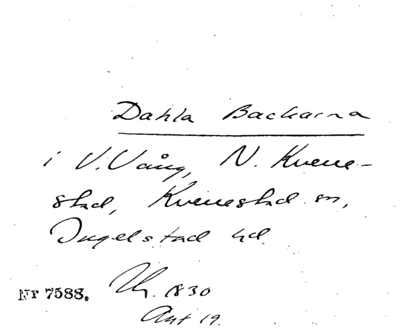 Dahla Backarna
i V. Vång, N. Kvene-
stad, Kvenestad sn,
Ingelstad hd.
Nr 7588. Th. 1830
Akt 19.